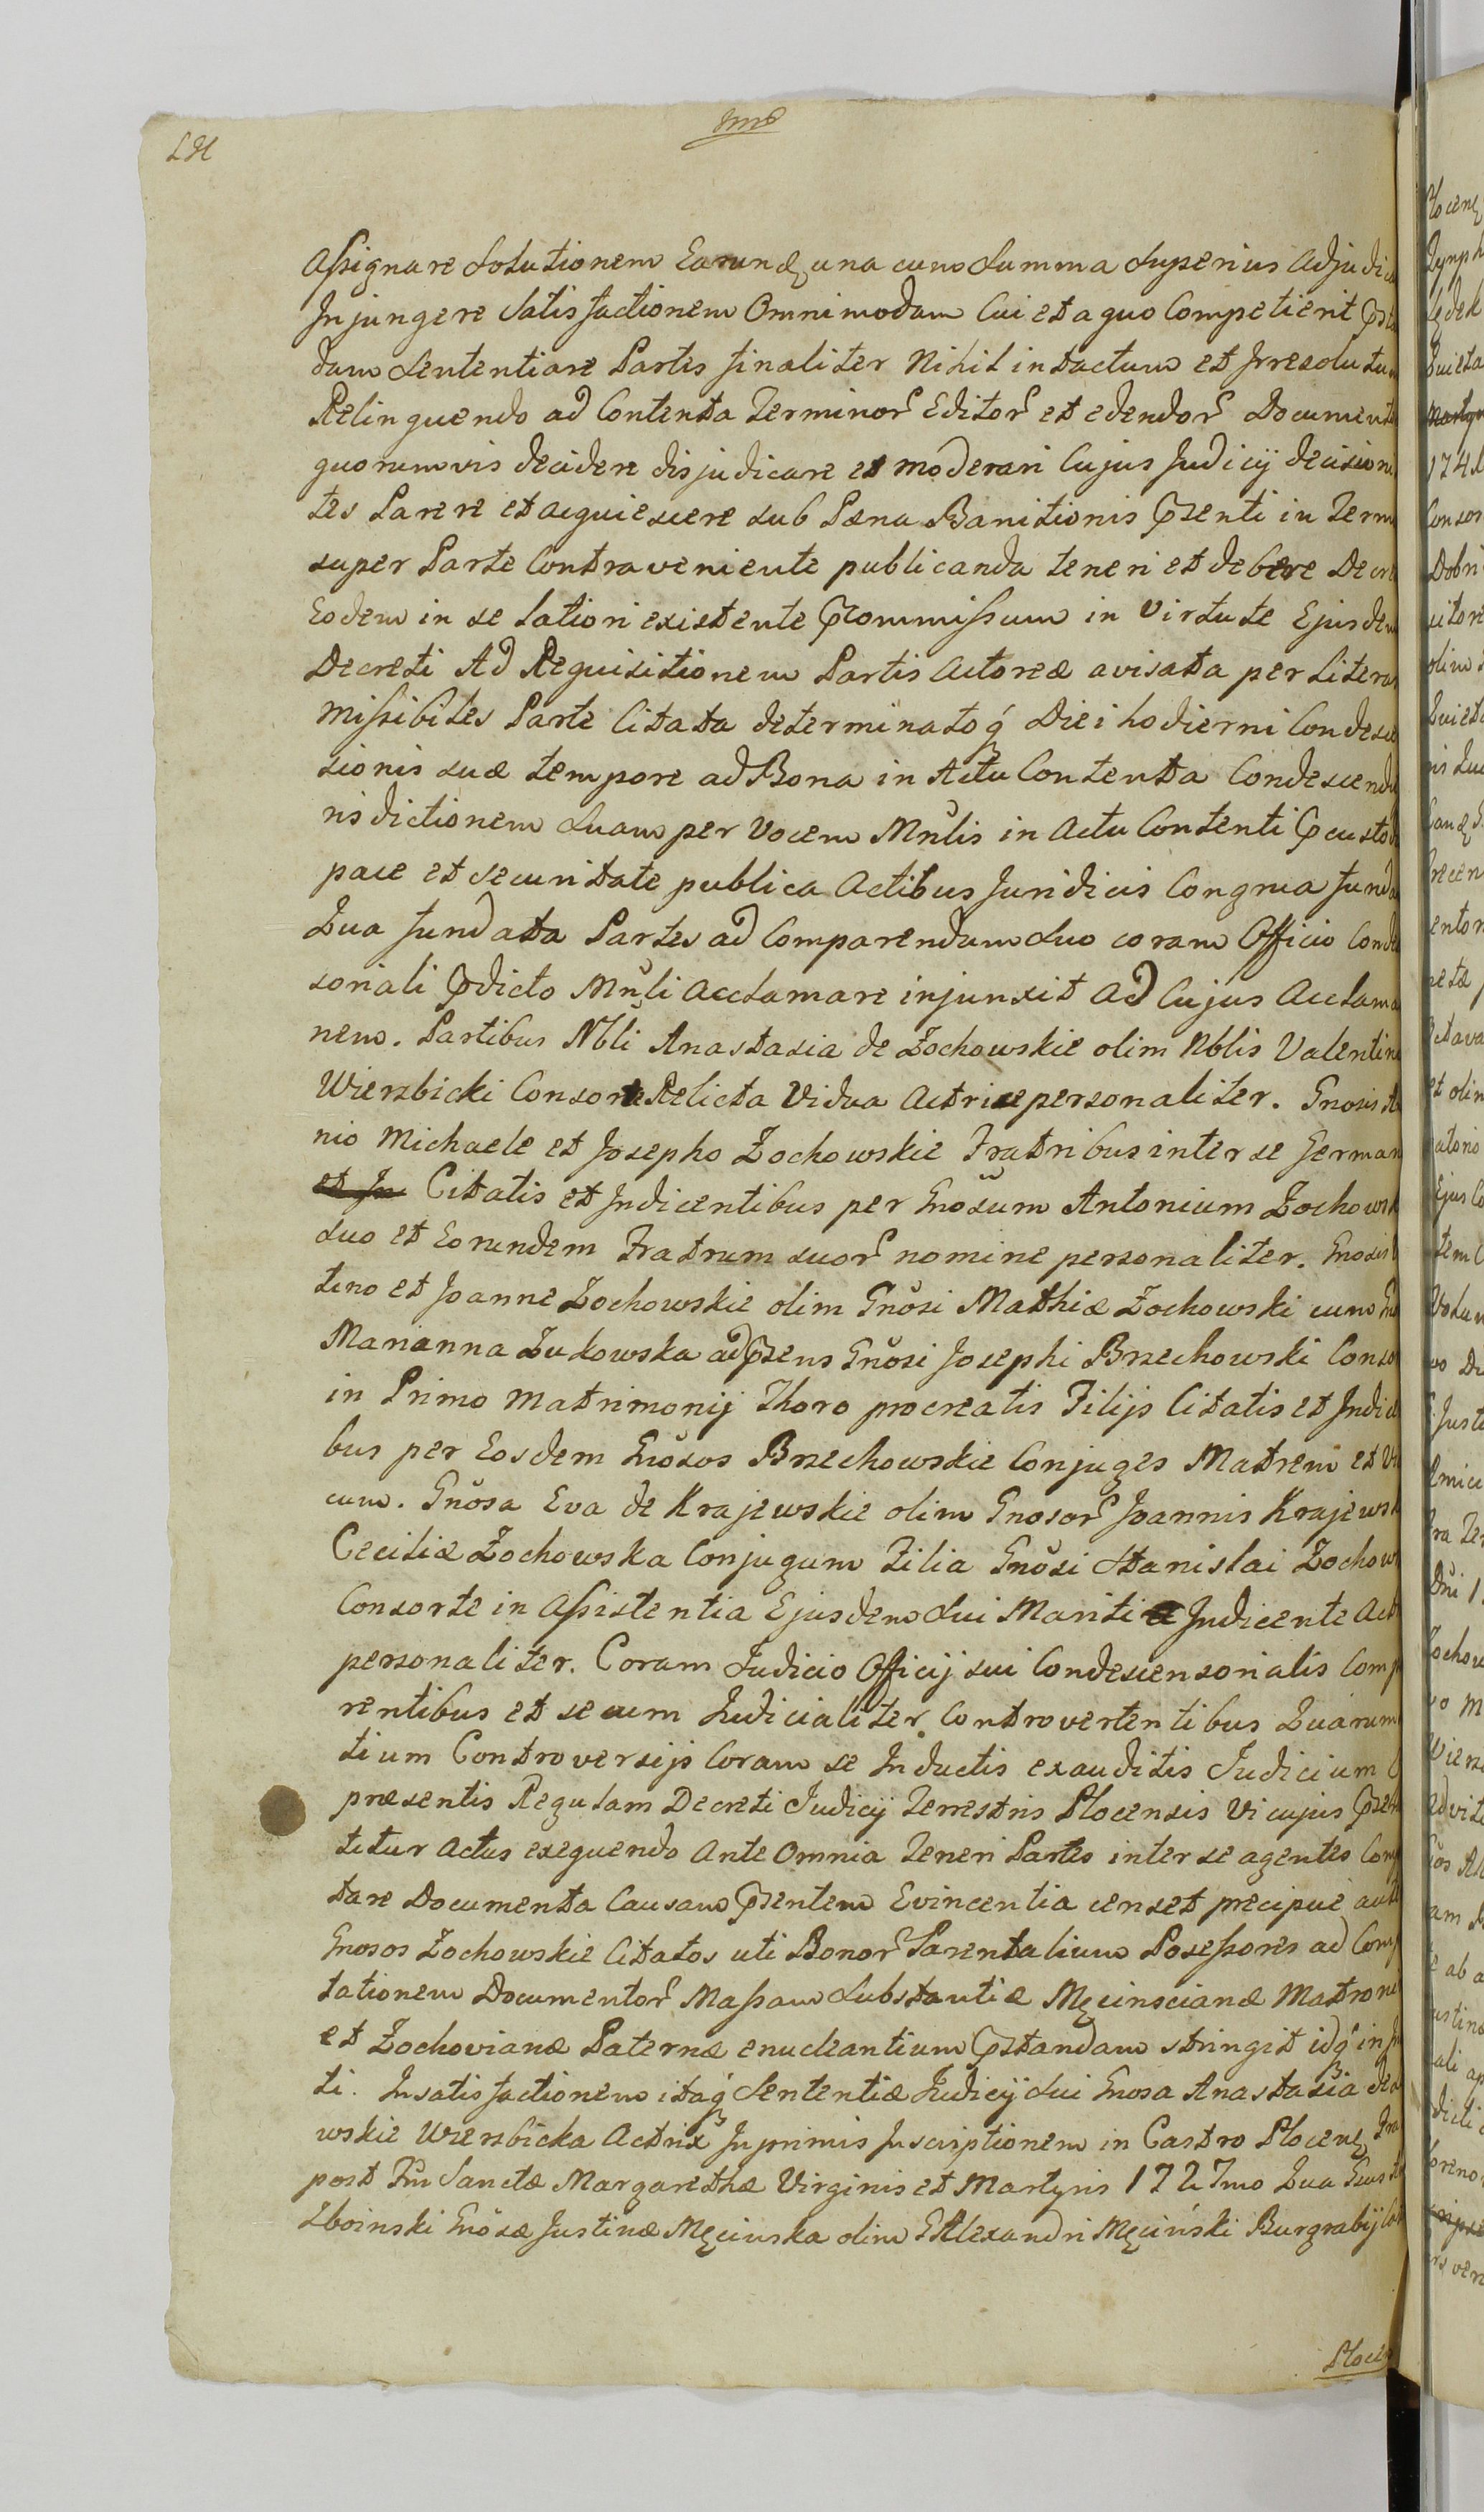 Assignare Solutionem Earunde una cum Summa Superius Adjudic
Injungere Satisfactionem Omnimodam Cui et a quo Competierit
dam Sententiare Partes finaliter Nihil intactum et Irresolutum
Relinquendo ad Contenta Terminor Editor et edendor Document
quorumvis decidere disjudicare et moderari Cujus Judicij decision
tes Parere et acquiescere sub Pæna Banitionis Psenti in Term
super Parte Contraveniente publicanda teneri et debere Decre
Eodem in se latiori existente Pcommissum in Virtute Ejusdem
Decreti Ad Requisitionem Partis Actoreæ avisata per Literas
Missibiles Parte Citata determinatoq Diei hodierni Condescen
sionis suæ tempore ad Bona in Actu Contenta Condescend
risdictionem Suam per Vocem Mnlis in Actu Contenti P custod
pace et securitate publica Actibus Juridicis Congrua funda
Qua fundata Partes ad Comparendum Suo coram Officio Conde
soriali Pdicto Mnli Acclamare injunxit Ad Cujus Acclama
nem. Partibus Nbli Anastasia de Żochowskie olim Nblis Valentini
Wierzbicki Consorte Relicta Vidua Actrice personaliter. Gnosis
nio Michaele et Josepho Żochowskie Fratribus inter se German
et In Citatis et Indicentibus per Gnosum Antonium Żochowsk
suo et Eorundem Fratrum suor nomine personaliter. Gnosis
tino et Joanne Żochowskie olim Gnosi Mathiæ Żochowski cum
Marianna Żukowska ad Psens Gnosi Josephi Brzechowski Conso
in Primo Matrimonij Thoro procreatis Filijs Citatis et Indic
bus per Eosdem Gnosos Brzechowskie Conjuges Matrem et
cum. Gnosa Eva de Krajewskie olim Gnosor Joannis Krajewsk
Ceciliæ Żochowska Conjugum Filia Gnosi Stanislai Żochow
Consorte in Assistentia Ejusdem Sui Mariti Indicente Act
personaliter. Coram Judicio Officij sui Condescensorialis Comp
rentibus et secum Judicialiter Controvertentibus Quarum
tium Controversijs Coram se Inductis exauditis Judicium
præsentis Regulam Decreti Judicij Terrestris Plocensis Vi cujus
titur Actus exequendo Ante Omnia Teneri Partes inter se agentes Comp
tare Documenta Causam Psentem Evincentia censet precipue aute
Gnosos Żochowskie Citatos uti Bonor Parentalium Possessores ad Comp
tationem Documentor Massam Substantiæ Męcinscianæ Matrone
et Żochovianæ Paternæ enucleantium Pstandam stringit idq in
ti. In satisfactionem itaq Sententiæ Judicij Sui Gnosa Anastasia de
wskie Wierzbicka Actrix Inprimis Inscriptionem in Castro Plocen
post Fm Sanctæ Margarethæ Virginis et Martyris 1727mo Qua
Zboinski Gnosæ Justinæ Męcinska olim G Alexandri Męciński Burgrabij
Plocen